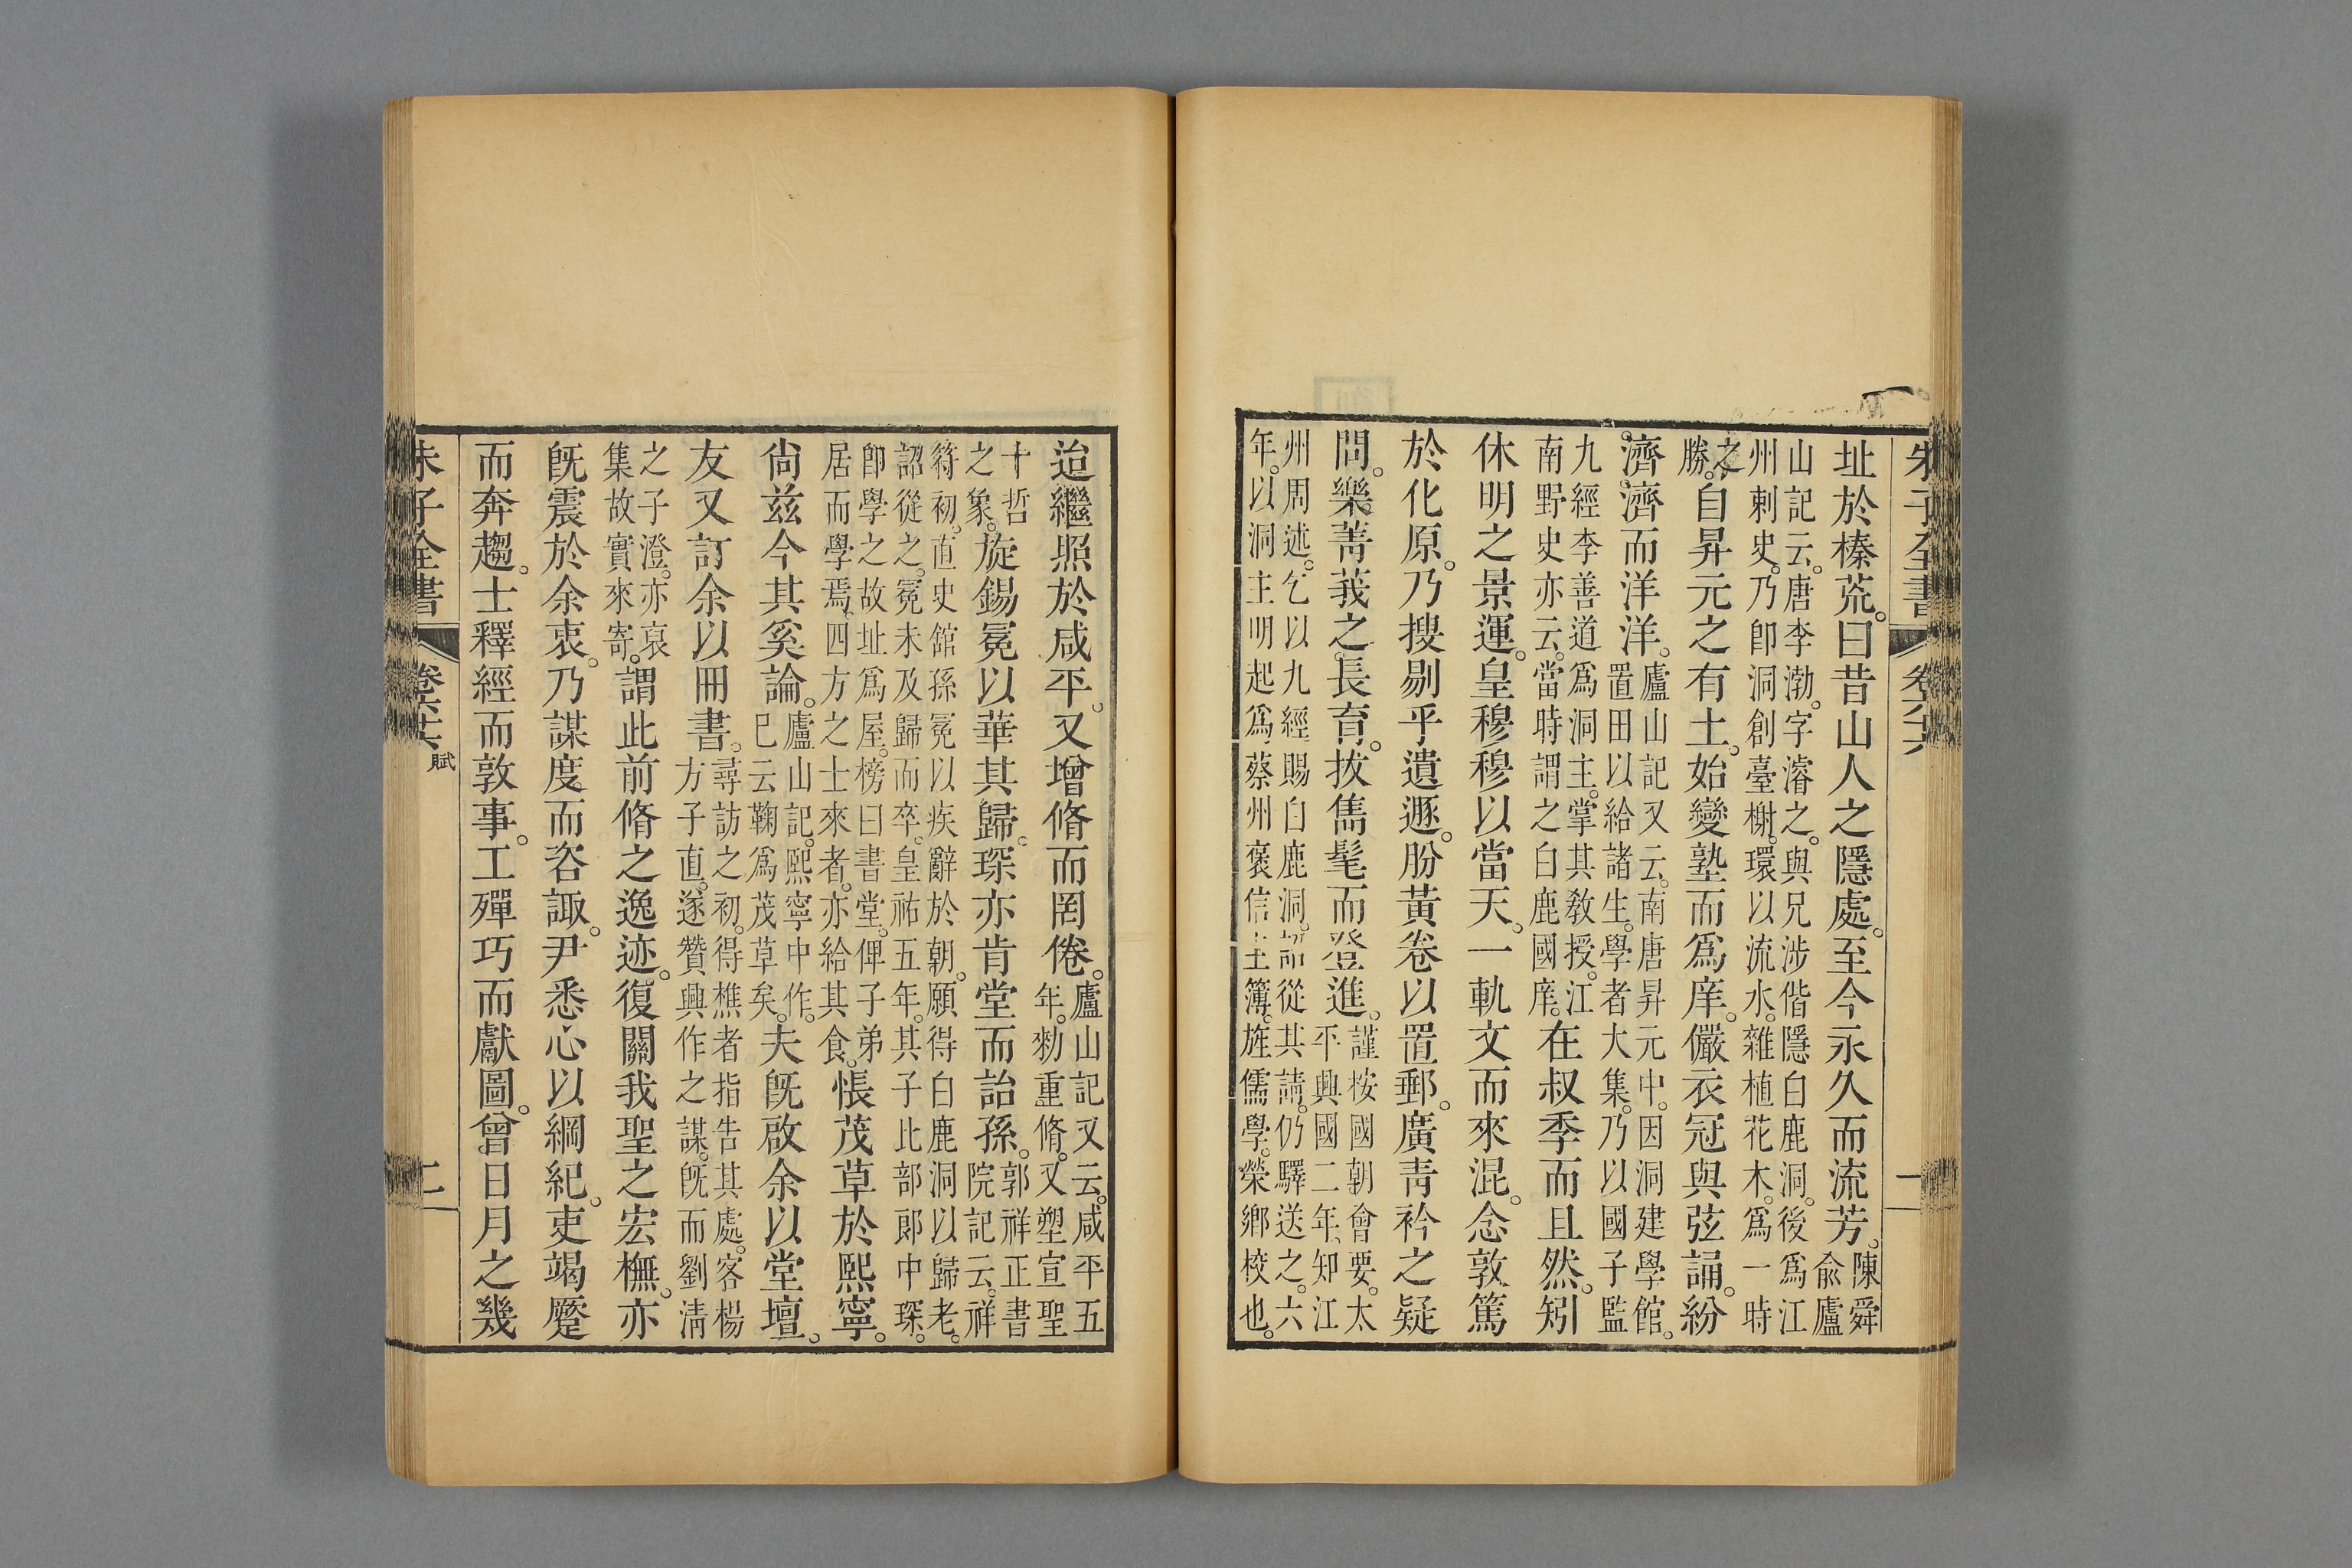 朱子全書 卷六十六 一
址於榛荒。曰昔山人之隱處。至今永久而流芳。陳舜俞廬
山記云。唐李渤。字濬之。與兄涉偕隱白鹿洞。後爲江州刺史。乃卽洞創臺榭。環以流水。雜植花木。爲一時
之勝。自昇元之有土。始變塾而爲庠。儼衣冠與弦誦。紛
濟濟而洋洋。廬山記又云。南唐昇元中。因洞建學館。置田以給諸生。學者大集。乃以國子監
九經李善道爲洞主。掌其教授。江南野史亦云。當時謂之白鹿國庠。在叔季而且然。矧
休明之景運。皇穆穆以當天。一軌文而來混。念敦篤
於化原。乃搜剔乎遺遯。朌黃卷以置郵。廣青衿之疑
問。樂菁莪之長育。拔雋髦而登進。謹桉國朝會要。太平興國二年。知江
州周述。乞以九經賜白鹿洞。詔從其請。仍驛送之。六年。以洞主明起爲蔡州褒信主簿。旌儒學。榮鄉校也。
迨繼照於咸平。又增脩而罔倦。廬山記又云。咸平五年。勑重脩。又塑宣聖
十哲之象。旋錫冕以華其歸。琛亦肯堂而詒孫。郭祥正書院記云。祥
符初。直史館孫冕以疾辭於朝。願得白鹿洞以歸老。詔從之。冕未及歸而卒。皇祐五年。其子比部郎中琛。
卽學之故址爲屋。榜曰書堂。俾子弟居而學焉。四方之士來者。亦給其食。悵茂草於熙寧。
尙茲今其奚論。廬山記。熙寧中作。已云鞠爲茂草矣。夫旣啟余以堂壇。
友又訂余以冊書。尋訪之初。得樵者指告其處。客楊方子直。遂贊興作之謀。旣而劉淸
之子澄。亦裒集故實來寄。謂此前脩之逸迹。復關我聖之宏橅。亦
旣震於余衷。乃謀度而咨諏。尹悉心以綱紀。吏竭蹷
而奔趨。士釋經而敦事。工殫巧而獻圖。曾日月之幾
朱子全書 卷六十六 賦 二